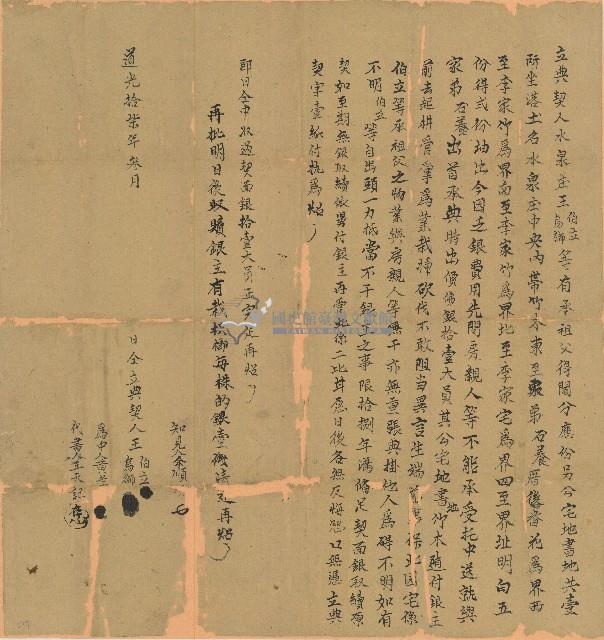 立典契人水泉庄王伯立烏獅等有承祖父得鬮分應份另公宅地書地共壹
所坐落土名水泉庄中央內帶竹木東至弟石養厝後香花為界西
至李家竹為界南至李家竹為界北至李家宅為界四至界址明白五
份得弍份抽出今因乏銀費用先問房親人等不能承受托中送就與
家弟石養出首承典時出價佛銀拾壹大員其公宅地書地竹木隨付銀主
前去起耕管掌為業栽種砍伐不敢阻當異言生端 保此園宅係
伯立等承祖父之物業與房親人等無干亦無重張典掛他人為碍不明如有
不明伯立等自出頭一力抵當不干銀主之事限拾捌年滿備足契面銀取贖原
契如至期無銀取贖依舊付銀主再掌 二比甘愿日後各無反悔恐口無憑立典
契字壹紙付執為炤
即日仝中收過契面銀拾壹大員正完足再炤
再批明日後取贖銀主有栽 每株的銀壹 再炤
知見
道光拾柒年叁月 日仝立典契人王伯立烏獅
為中人
代書人
國史館臺灣文獻館
TAIWAN HISTORICA